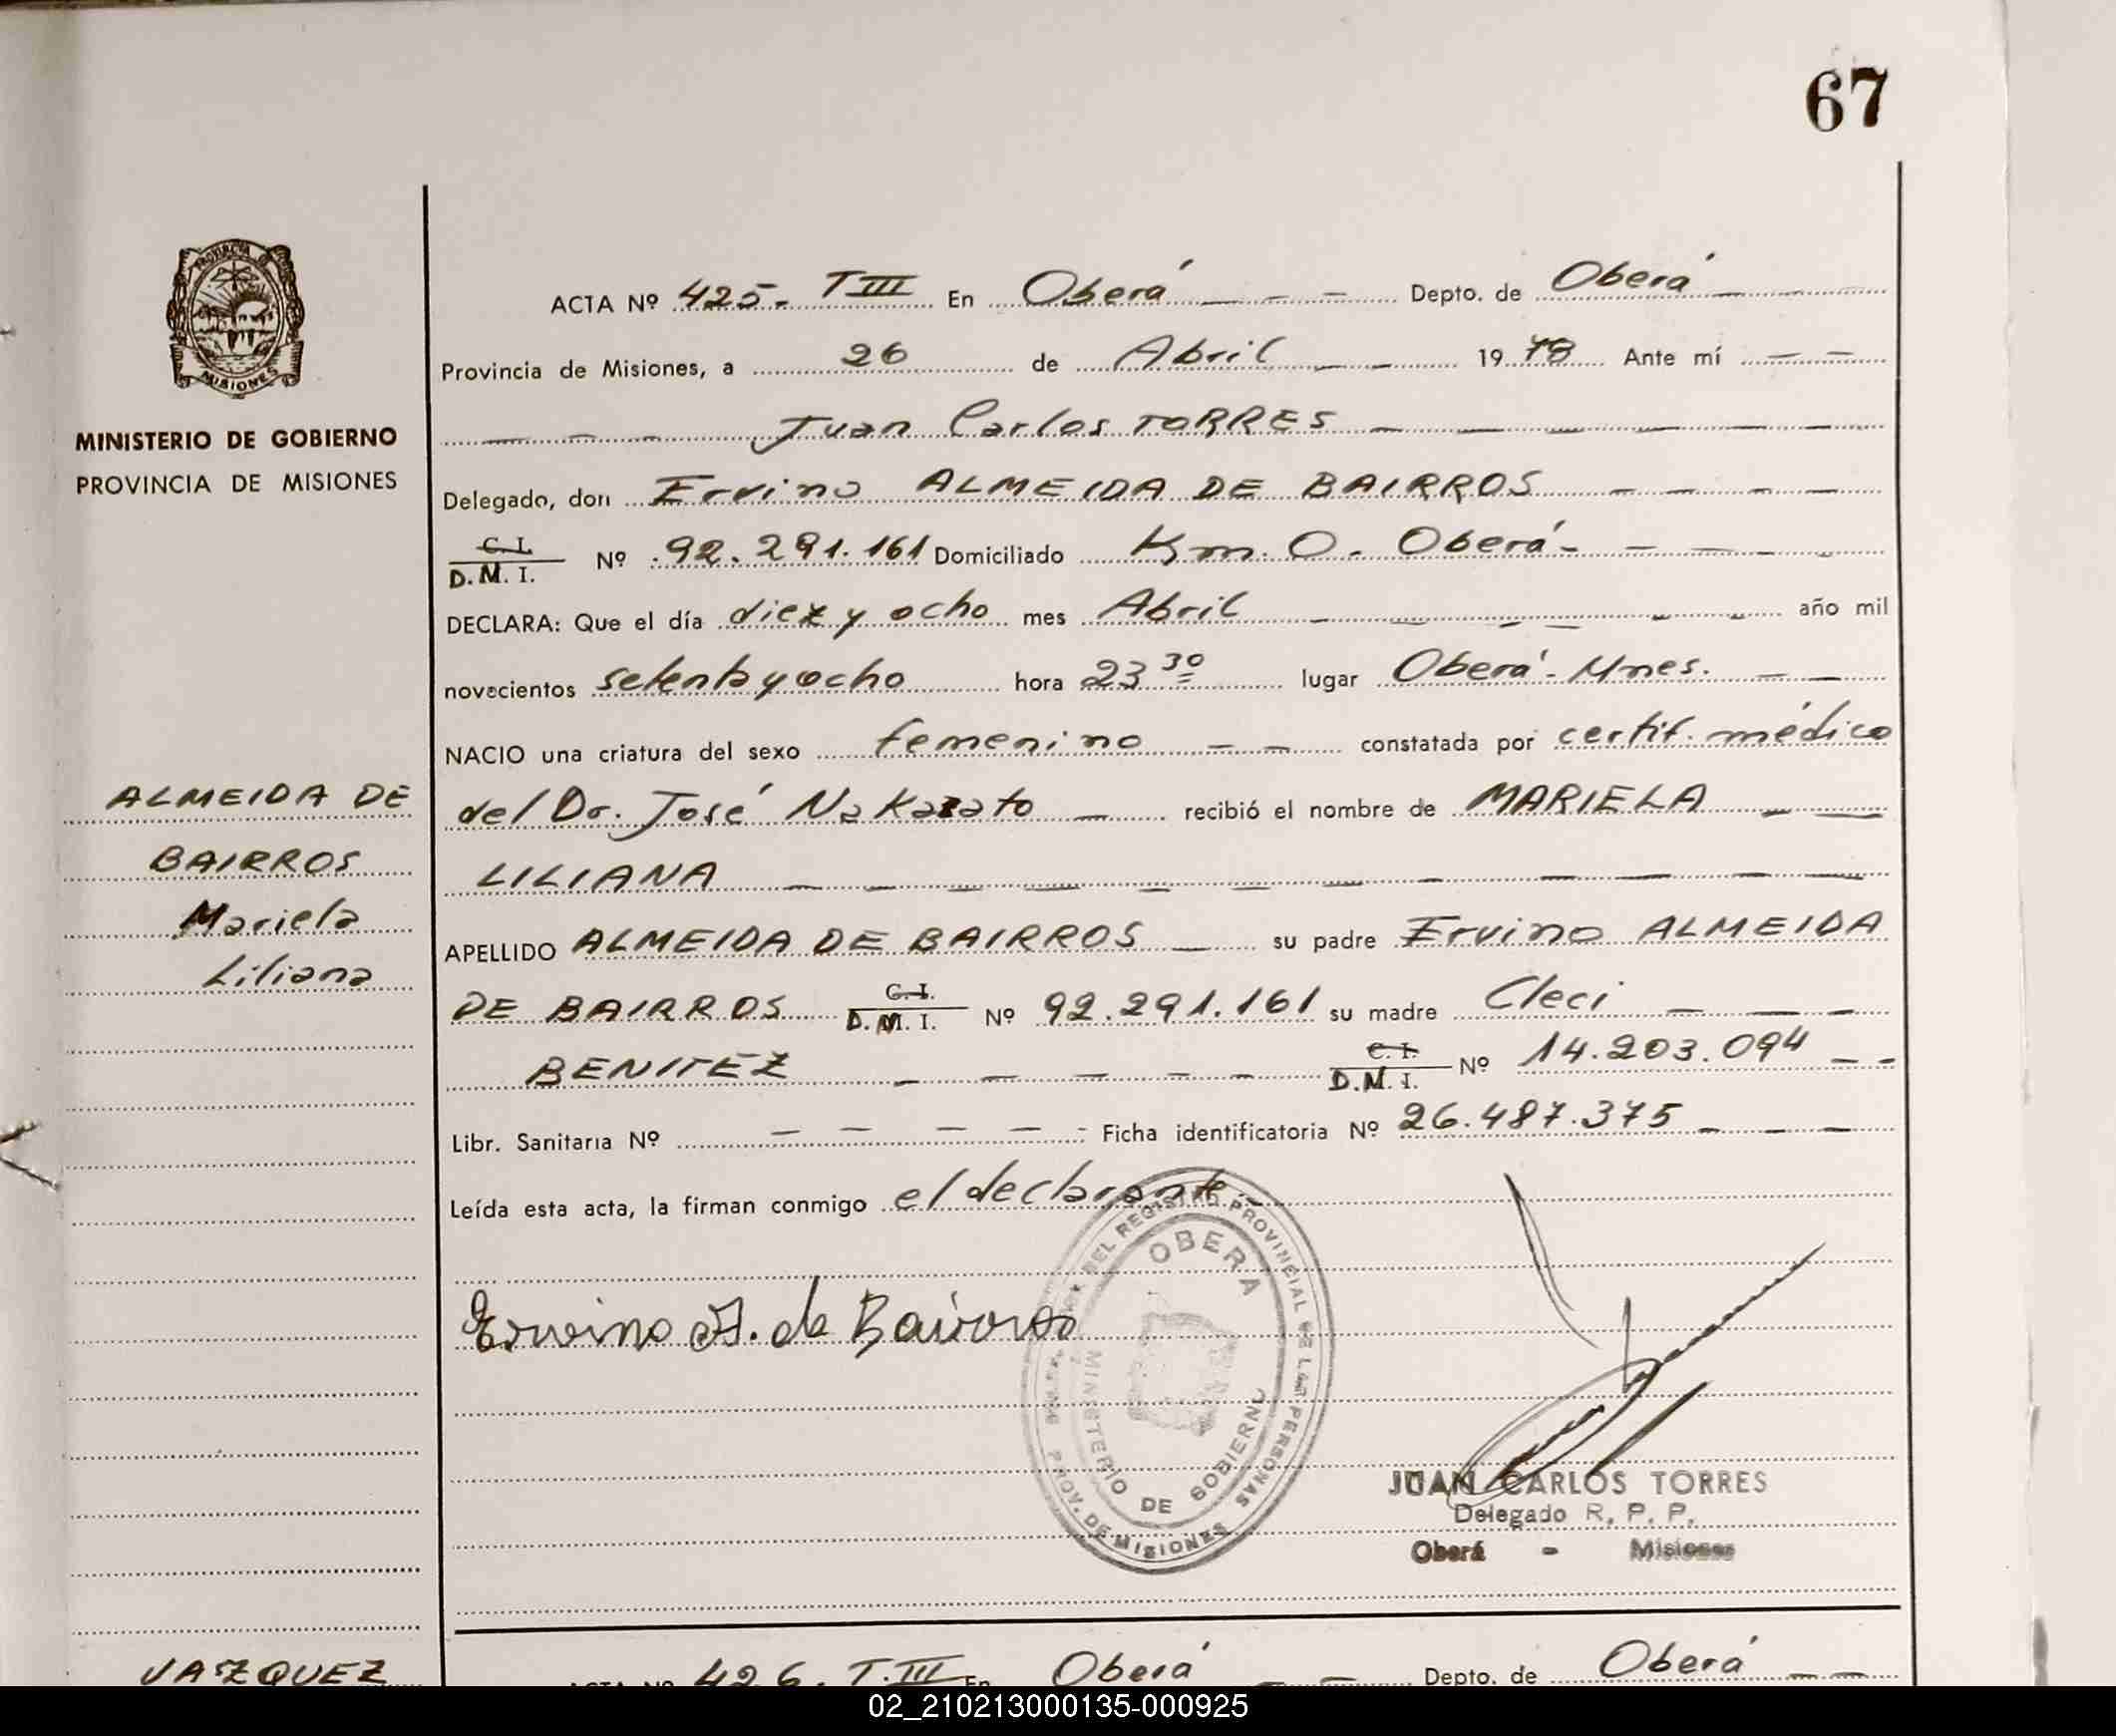 67
PROVINCIA DE
MISIONES
MINISTERIO DE GOBIERNO
PROVINCIA DE MISIONES
ACTA Nº 425. T III En Oberá Depto. de Oberá
Provincia de Misiones, a 26 de Abril 1978 Ante mí
Juan Carlos TORRES
Delegado, don Ervino ALMEIDA DE BAIRROS
C. I.
D. M. I. Nº 92.291.161 Domiciliado Km. 0. Oberá
DECLARA: Que el día diez y ocho mes Abril año mil
novecientos setenta y ocho hora 23 30 lugar Oberá - Mnes.
NACIO una criatura del sexo femenino constatada por certif. médico
del Dr. José Nakazato recibió el nombre de MARIELA
LILIANA
APELLIDO ALMEIDA DE BAIRROS su padre Ervino ALMEIDA
DE BAIRROS C. I. D. M. I. Nº 92.291.161 su madre Cleci
BENITEZ C. I. D. M. I. Nº 14.203.094
Libr. Sanitaria Nº Ficha identificatoria Nº 26.487.375
Leída esta acta, la firman conmigo el declarante.
ALMEIDA DE
BAIRROS
Mariela
Liliana
Erwino A. de Bairros
DEL REGISTRO PROVINCIAL DE LAS PERSONAS
PROV. DE MISIONES
OBERA
MINISTERIO DE GOBIERNO
JUAN CARLOS TORRES
Delegado R. P. P.
Oberá - Misiones
VAZQUEZ
ACTA Nº 426. T.III En Oberá Depto. de Oberá
02_210213000135-000925